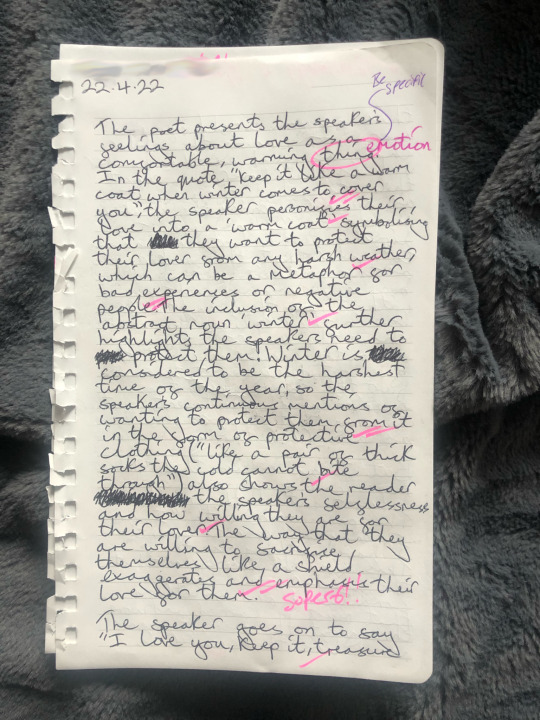 22.4.22
Be specific
The poet presents the speaker's
feelings about love as a
comfortable, warming thing. emotion
In the quote, "keep it like a warm
coat when winter comes to cover
you", the speaker personifies their
love into a 'warm coat', symbolising
that they want to protect
their lover from any harsh weather,
which can be a metaphor for
bad experiences or negative
people. The inclusion of the
abstract noun 'winter' further
highlights the speakers need to
protect them. Winter is
considered to be the harshest
time of the year, so the
speakers continuous mentions of
wanting to protect them from it
in the form of protective
clothing ("like a pair of thick
socks the cold cannot bite
through") also shows the reader
the speaker's selflessness
and how willing they are for
their lover. The way that they
are willing to sacrifice
themselves like a shield
exaggerates and emphasis their
love for them. Superb!!
The speaker goes on to say
"I love you, keep it, treasure